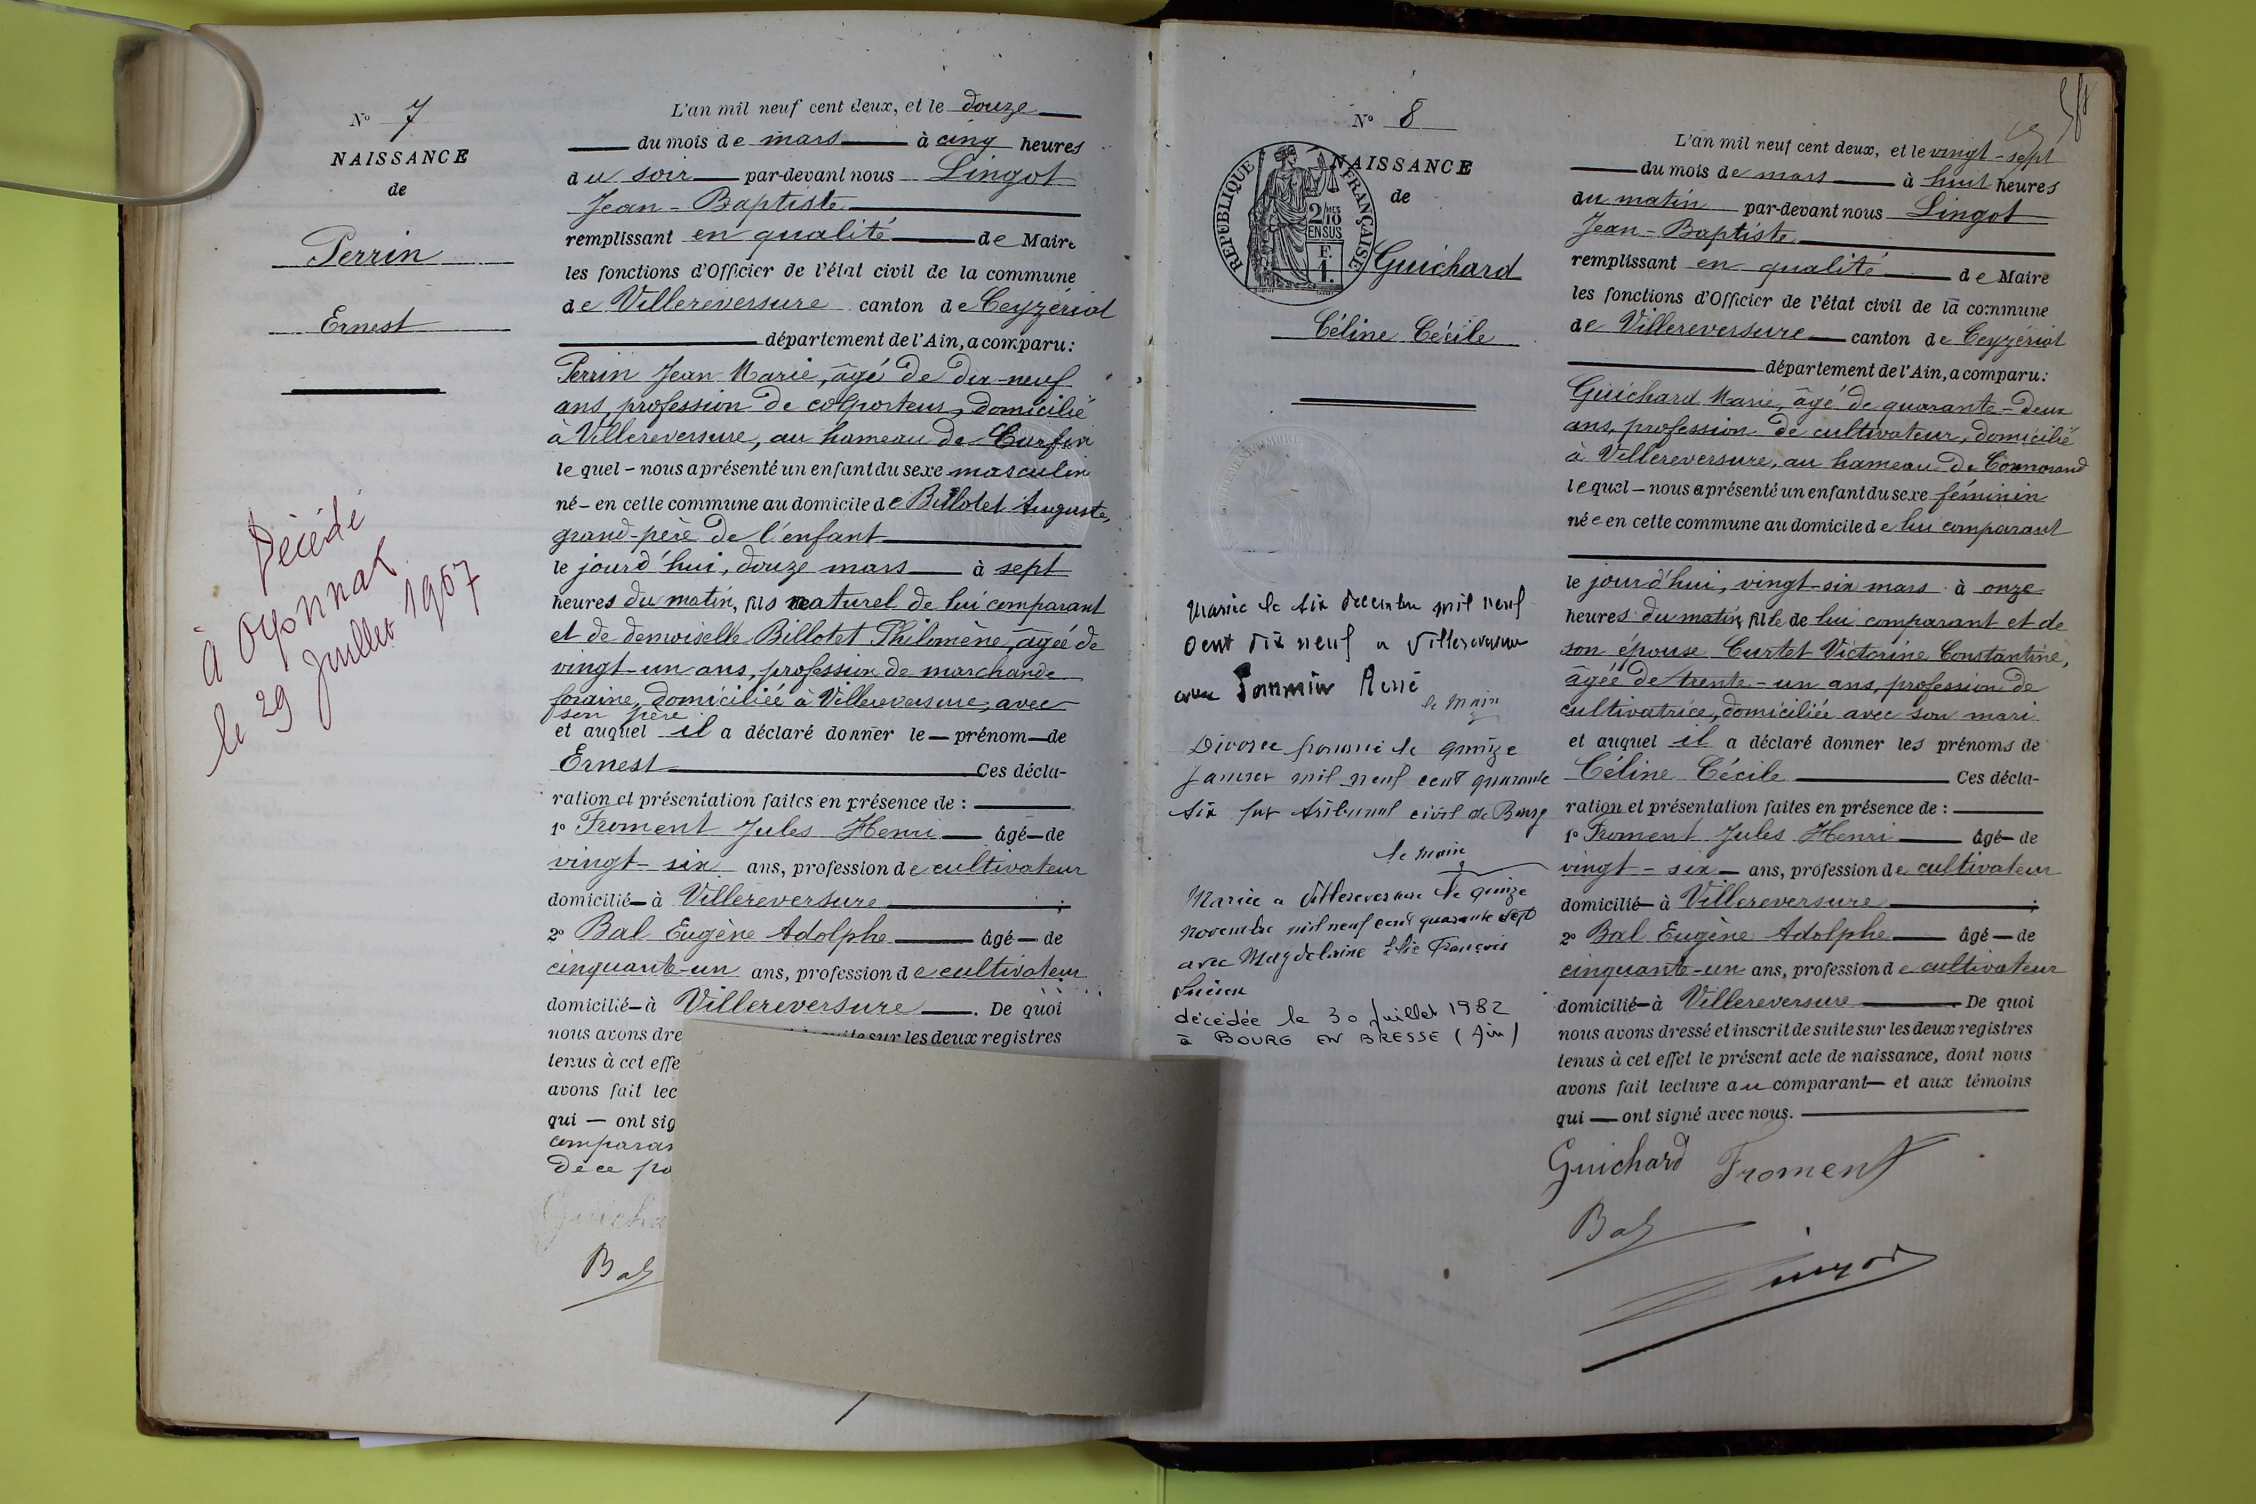 N° 7
NAISSANCE
de
Perrin
Ernest
Décédé
à Oyonnax
le 29 Juillet 1967
L'an mil neuf cent deux, et le douze
du mois de mars à cinq heures
du soir par-devant nous Lingot
Jean-Baptiste
remplissant en qualité de Maire
les fonctions d'Officier de l'état civil de la commune
de Villereversure canton de Ceyzériat
département de l'Ain, a comparu:
Perrin Jean Marie, âgé de dix-neuf
ans, profession de colporteur, domicilié
à Villereversure, au hameau de Curfin
lequel – nous a présenté un enfant du sexe masculin
né – en cette commune au domicile de Billotet Auguste,
grand-père de l'enfant
le jourd'hui, douze mars à sept
heures du matin, fils naturel de lui comparant
et de demoiselle Billotet Philomène, âgée de
vingt-un ans, profession de marchande
foraine, domiciliée à Villereversure, avec
son père
et auquel il a déclaré donner le — prénom — de
Ernest Ces décla-
ration et présentation faites en présence de :
1° Froment Jules Henri âgé — de
vingt-six ans, profession de cultivateur
domicilié — à Villereversure ;
2° Bal Eugène Adolphe âgé — de
cinquante-un ans, profession de cultivateur
domicilié — à Villereversure . De quoi
nous avons dre suite sur les deux registres
tenus à cet effe
avons fait lec
qui — ont sig
comparan
de ce po
Guicha
Bal
N° 8
NAISSANCE
de
RÉPUBLIQUE FRANÇAISE
2/10 MES
EN SUS
E
1
Guichard
Céline Cécile
Mariée le six décembre mil neuf
cent dix neuf a Villereversure
avec
le Maire
Divorce prononcé le quinze
Janvier mil neuf cent quarante
six par tribunal civil de Bourg
le maire
Mariée a Villereversure le quinze
novembre mil neuf cent quarante sept
avec Magdelaine Elie François
Lucien
décédée le 30 Juillet 1982
à BOURG EN BRESSE (Ain)
L'an mil neuf cent deux, et le vingt-sept
du mois de mars à huit heures
du matin par-devant nous Lingot
Jean-Baptiste
remplissant en qualité de Maire
les fonctions d'Officier de l'état civil de la commune
de Villereversure canton de Ceyzériat
département de l'Ain, a comparu:
Guichard Marie, âgé de quarante-deux
ans, profession de cultivateur, domicilié
à Villereversure, au hameau de Cormorand
lequel – nous a présenté un enfant du sexe féminin
née en cette commune au domicile de lui comparant
le jourd'hui, vingt-six mars à onze
heures du matin, fille de lui comparant et de
son épouse Curtet Victorine Constantine,
âgée de trente-un ans, profession de
cultivatrice, domiciliée avec son mari
et auquel il a déclaré donner les prénoms de
Céline Cécile Ces décla-
ration et présentation faites en présence de :
1° Froment Jules Henri âgé — de
vingt-six ans, profession de cultivateur
domicilié — à Villereversure ;
2° Bal Eugène Adolphe âgé — de
cinquante-un ans, profession de cultivateur
domicilié — à Villereversure De quoi
nous avons dressé et inscrit de suite sur les deux registres
tenus à cet effet le présent acte de naissance, dont nous
avons fait lecture au comparant — et aux témoins
qui — ont signé avec nous.
Guichard Froment
Bal
Lingot